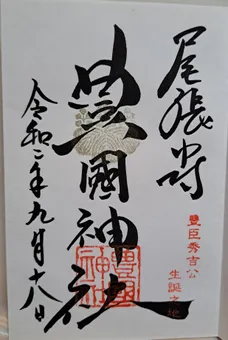 尾張中村
豊臣秀吉公
生誕之地
豊國神社
豊國
神社
令和二年九月十八日